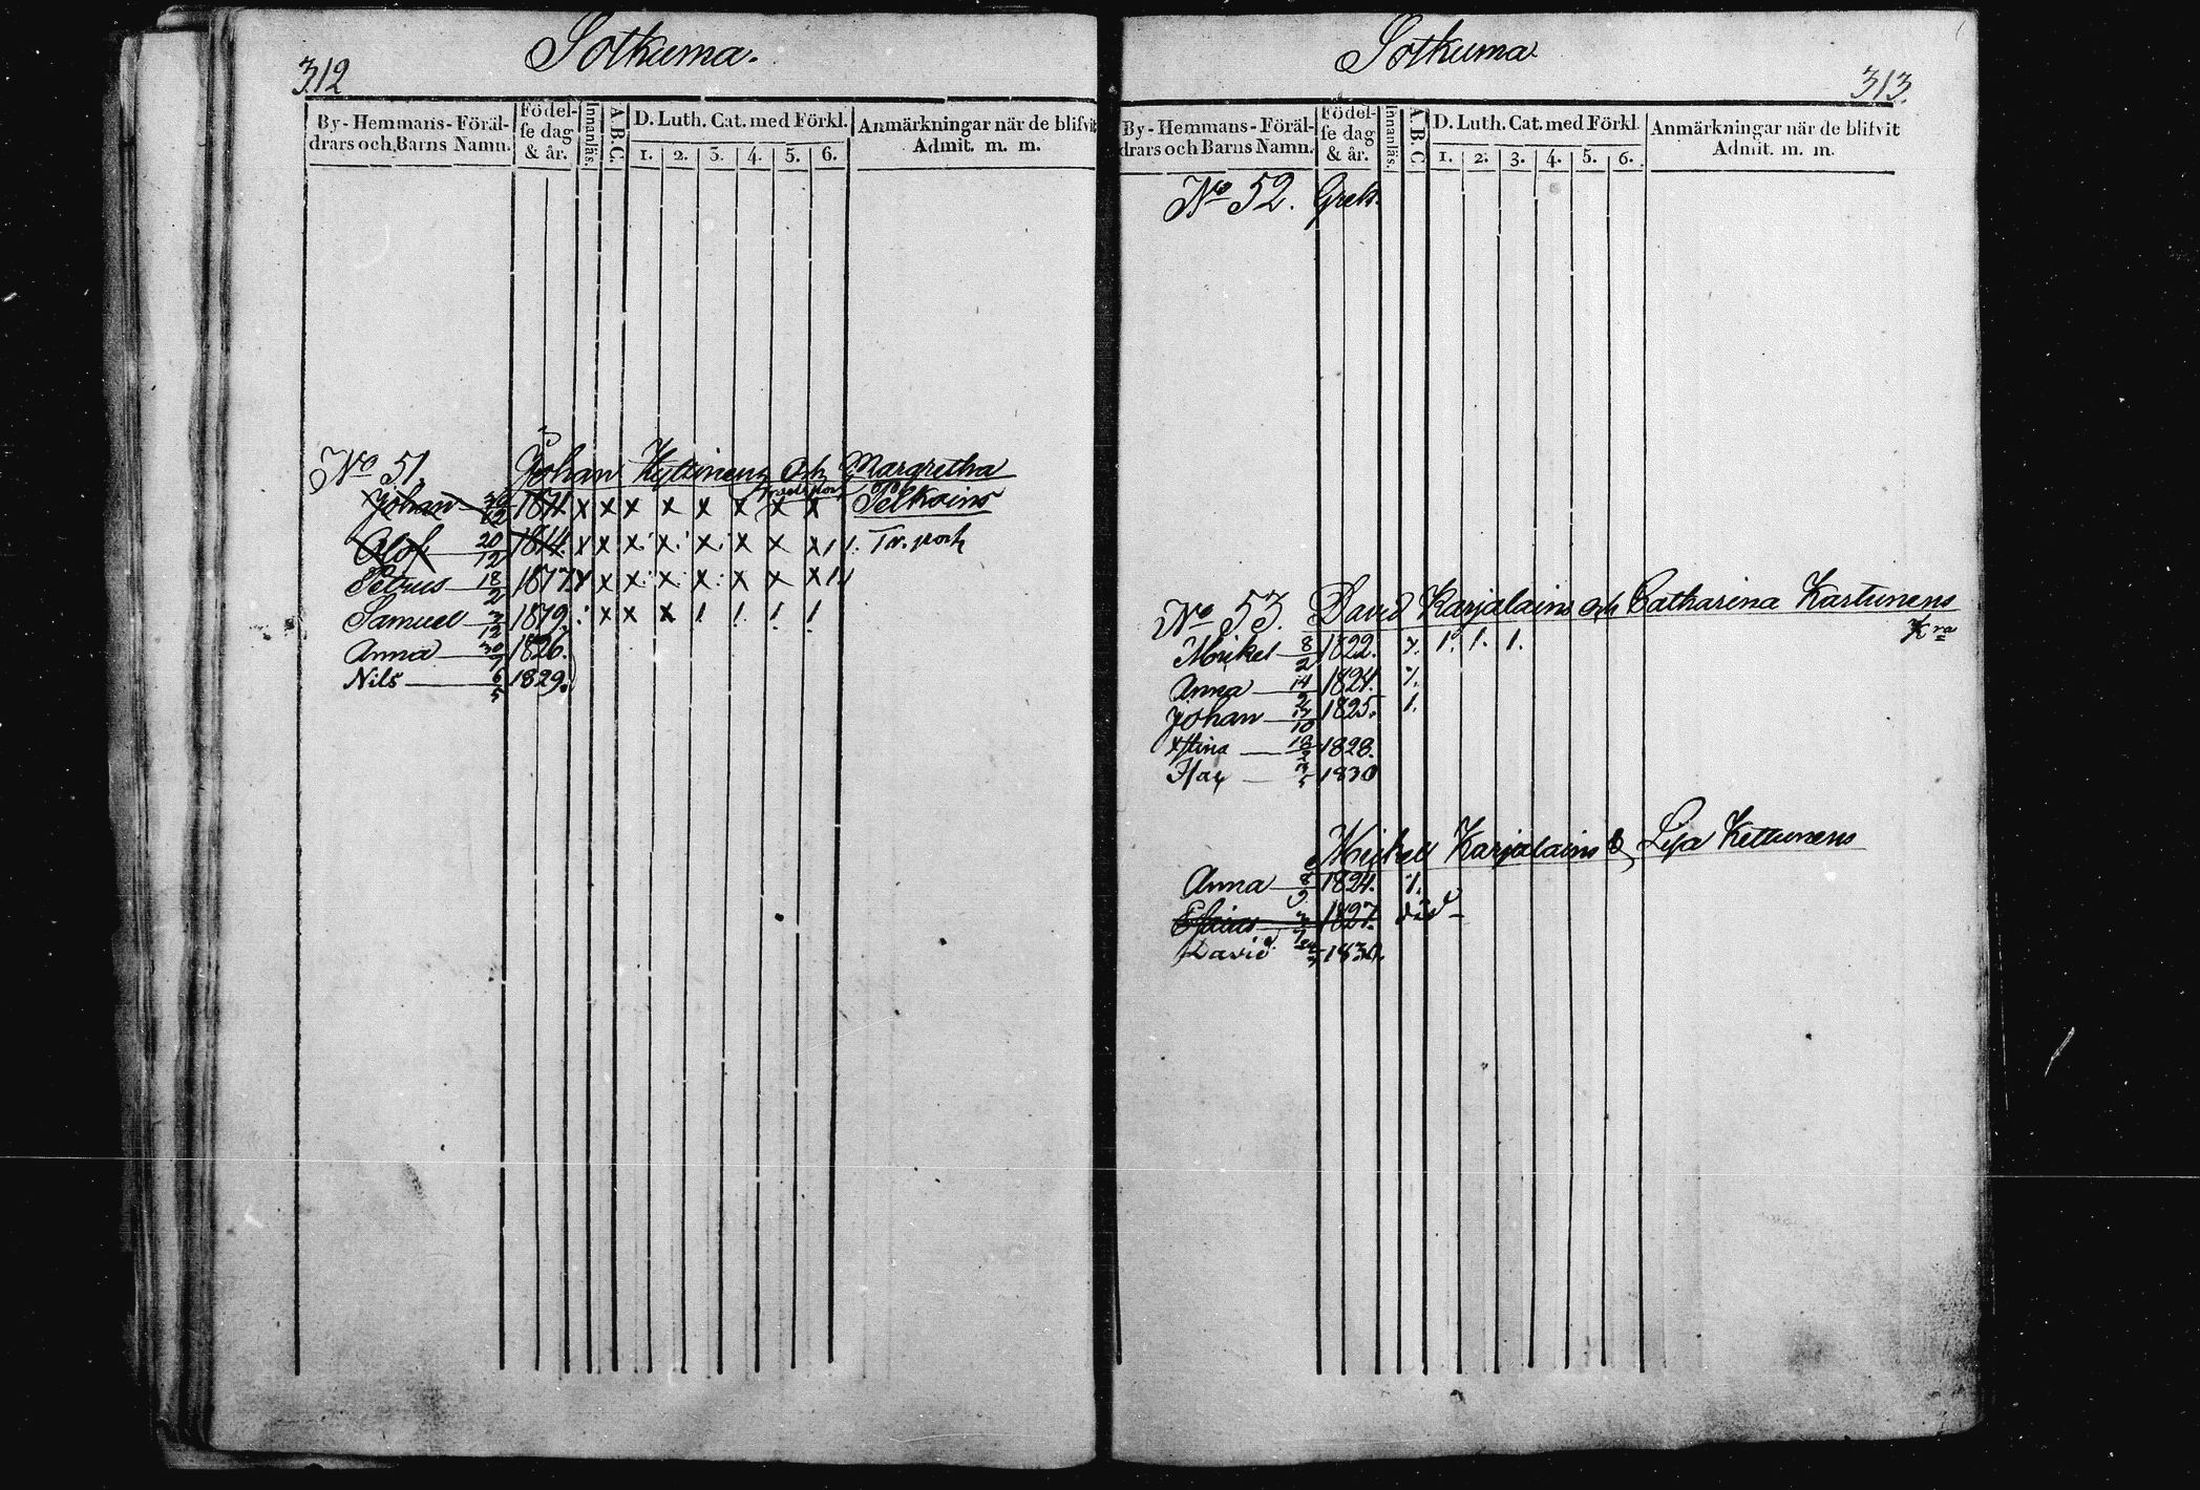 312
Sotkuma.
By-Hemmans-Föräl-
drars och Barns Namn.
Födel-
se dag
& år.
Innanläs.
A.B.C.
D. Luth. Cat. med Förkl.
1. 2. 3. 4. 5. 6.
Anmärkningar när de blifvit
Admit. m. m.
No 51. Johan och Margretha
Johan 12 x x x x x x x x
Olof 20/12 1814. x x x x x x x x
Petrus 18/2 1817. x x x x x x x x
Samuel 1819. x x x 1 1 1 1
Anna 1826.
Nils 6/5 1829.
Sotkuma
313.
By-Hemmans-Föräl-
drars och Barns Namn.
Födel-
se dag
& år.
Innanläs.
A.B.C.
D. Luth. Cat. med Förkl.
1. 2. 3. 4. 5. 6.
Anmärkningar när de blifvit
Admit. m. m.
No 52. Grek.
No 53. David Karjalains och Catharina Kartunens
Mickel 8/2 1822. 1. 1. 1.
Anna 14 1824.
Johan 10 1825. 1.
Stina 18 1828.
Isac 5 1830
Mickel Karjalains & Lisa Kettunens
Anna 8/9 1824. 1.
Esaias 1827. död
David 1830.